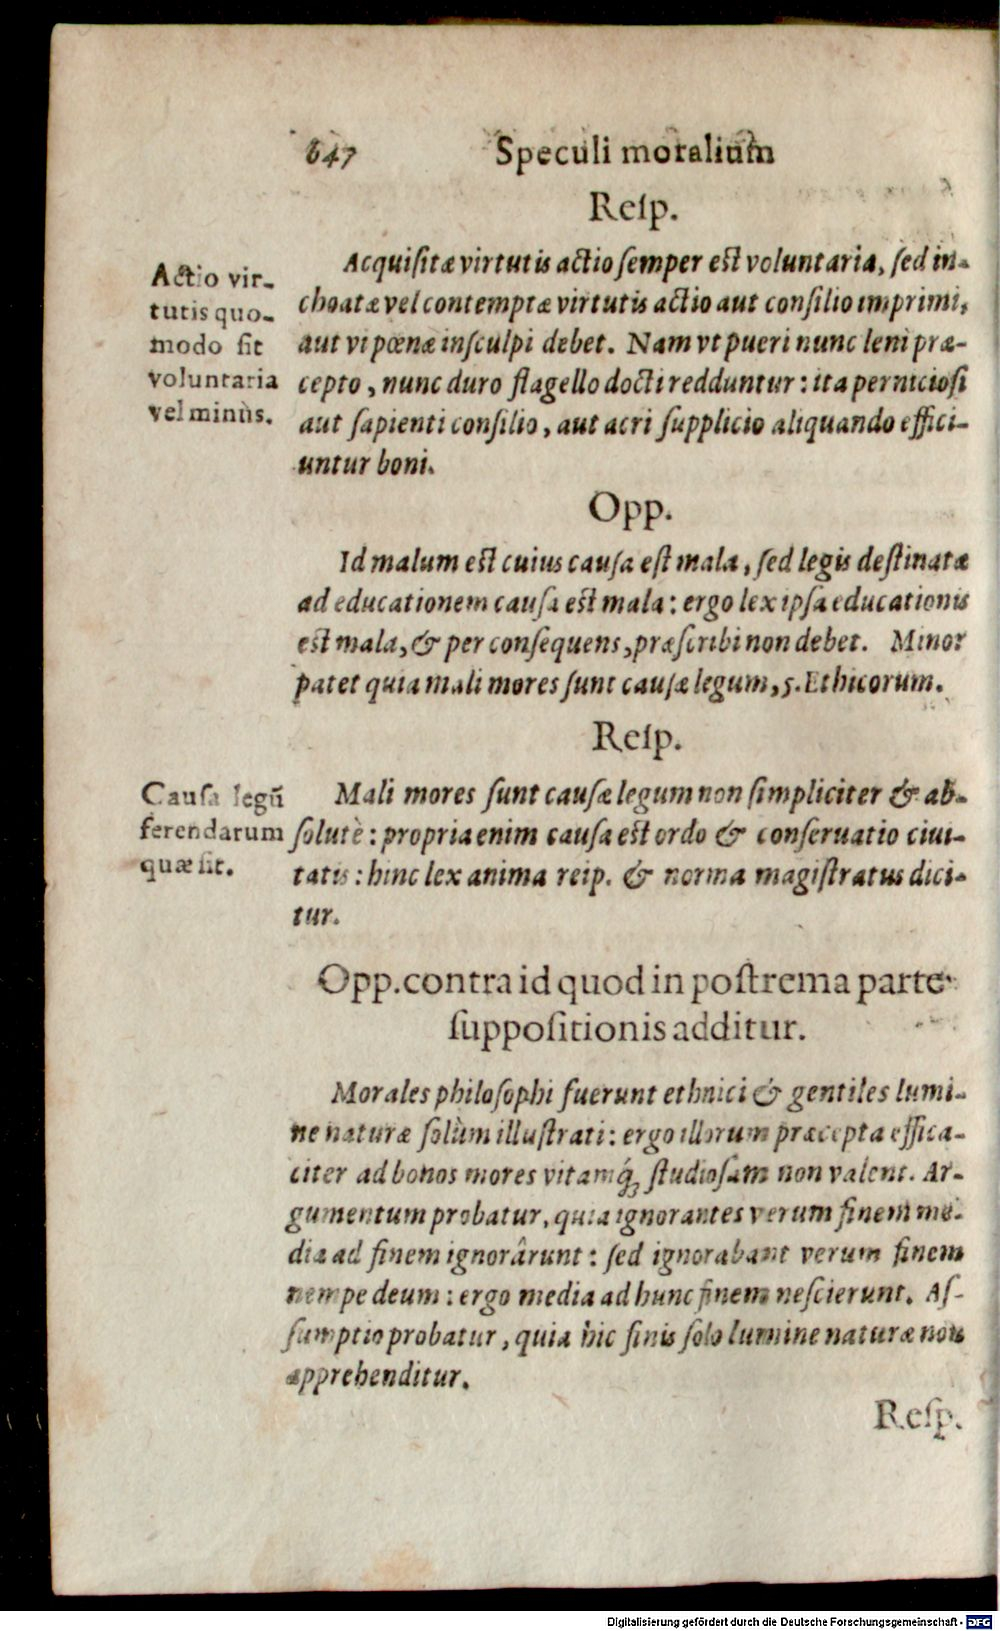 647 Speculi moralium
Resp.
Actio vir-
tutis quo-
modo sit
voluntaria
vel minùs.
Acquisitæ virtutis actio semper est voluntaria, sed in-
choatæ vel contemptæ virtutis actio aut consilio imprimi,
aut vi pœnæ insculpi debet. Nam vt pueri nunc leni præ-
cepto, nunc duro flagello docti redduntur: ita perniciosi
aut sapienti consilio, aut acri supplicio aliquando effici-
untur boni.
Opp.
Id malum est cuius causa est mala, sed legis destinatæ
ad educationem causa est mala: ergo lex ipsa educationis
est mala, & per consequens, præscribi non debet. Minor
patet quia mali mores sunt causæ legum, 5. Ethicorum.
Resp.
Causa legū
ferendarum
quæ sit.
Mali mores sunt causæ legum non simpliciter & ab-
solutè: propria enim causa est ordo & conseruatio ciui-
tatis: hinc lex anima reip. & norma magistratus dici-
tur.
Opp. contra id quod in postrema parte
suppositionis additur.
Morales philosophi fuerunt ethnici & gentiles lumi-
ne naturæ solùm illustrati: ergo illorum præcepta effica-
citer ad bonos mores vitamq́; studiosam non valent. Ar-
gumentum probatur, quia ignorantes verum finem me-
dia ad finem ignorârunt: sed ignorabant verum finem
nempe deum: ergo media ad hunc finem nescierunt. As-
sumptio probatur, quia hic finis solo lumine naturæ non
apprehenditur.
Resp.
Digitalisierung gefördert durch die Deutsche Forschungsgemeinschaft - DFG